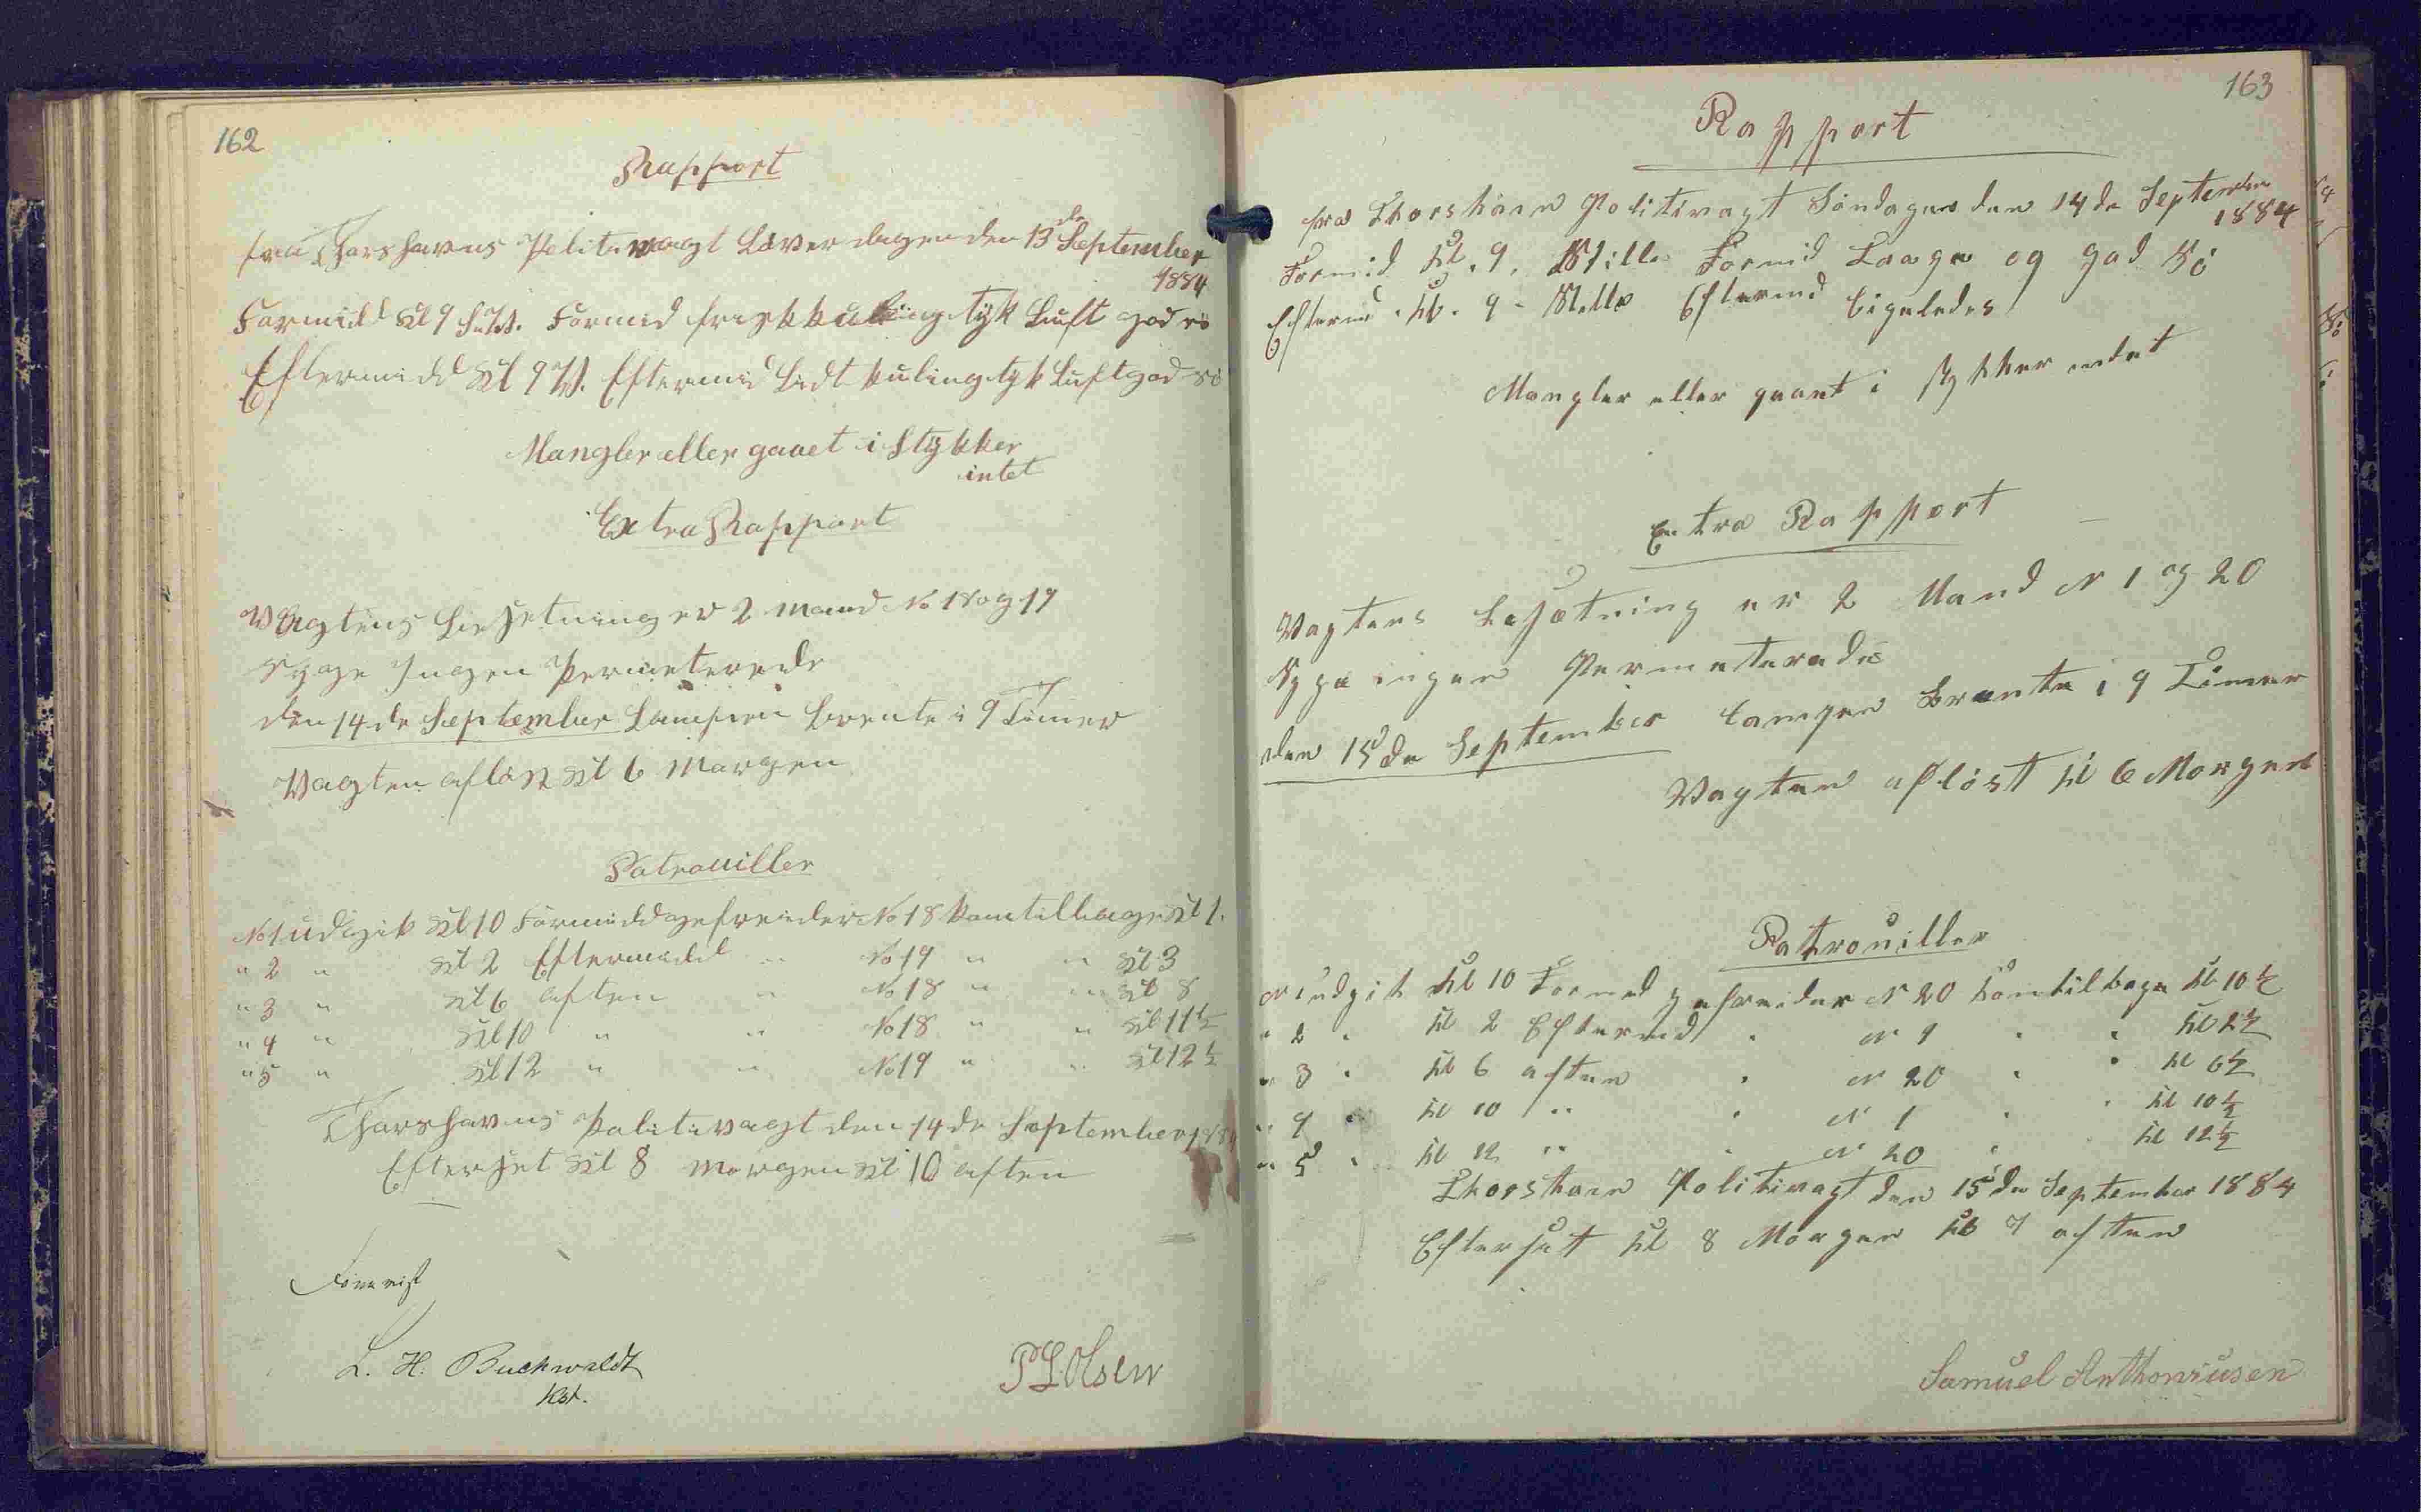 162
Rapport
fra Thorshavns Politivagt Löverdagen den 13de September
1884
Formidd Kl 9 S.W. Formid frisk kuling tyk Luft god sö
Eftermidd Kl 9 W. Eftermid Lidt kuling tyk Luft god sö
Mangler eller gaaet i Stykker
intet
Extra Rapport
Vagtens besetning er 2 Mand No 18 og 19
Syge Ingen Permeterede
den 14de September Lampen brente i 9 Timer
Vagten aflöst Kl 6 Morgen
Patrouiller
No 1 udgik Kl 10 Formidd gefreider No 18 kom tilbage Kl 1.
" 2 " Kl 2 Eftermidd " No 19 " " Kl 3
" 3 " Kl 6 aften " No 18 " " Kl 8
" 4 " Kl 10 " " No 18 " " Kl 11½
" 5 " Kl 12 " " No 19 " " Kl 12½
Thorshavns Politivagt den 14de September 1884
Efterset Kl 8 Morgen Kl 10 aften
Forevist
L. H. Buchwaldt
Kst.
P L Olsen
163
Rapport
fra Thorshavn Politivagt Söndagen den 14de September
1884
Formid Kl. 9. Stille Formid Laage og god Sö
Eftermd. Kl. 9 - Stille Eftermd Ligeledes
Mangler eller gaaet i stykker indet
Extra Rapport
Vagtens besætning er 2 Mand N 1 og 20
Syge ingen Permeterede
den 15de September Lampen Brænte i 9 Timer
Vagten aflöst kl 6 Morgen
Patrouiller
N 1 udgik Kl 10 Formd gefreider N 20 kom tilbage kl 10½
" 2 " kl 2 Eftermd " N 1 " " kl 2½
" 3 " kl 6 aften " N 20 " " kl 6½
" 4 " kl 10 " " N 1 " " kl 10½
" 5 " kl 12 " " N 20 " " kl 12½
Thorshavn Politivagt den 15de September 1884
Efterset kl 8 Morgen kl 7 aften
Samuel Anthoniusen